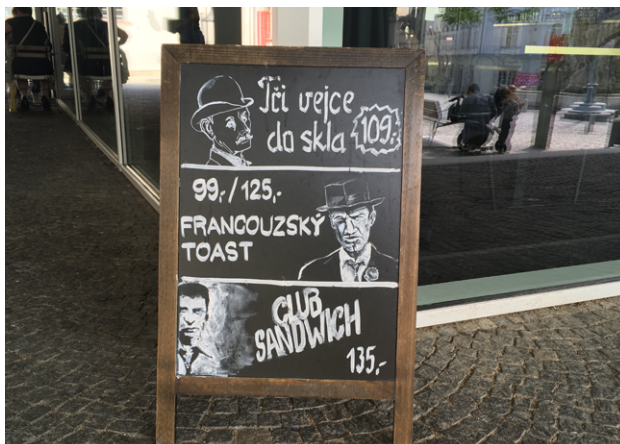 Tři vejce
do skla 109,-
99,-/125,-
FRANCOUZSKÝ
TOAST
CLUB
SANDWICH
135,-